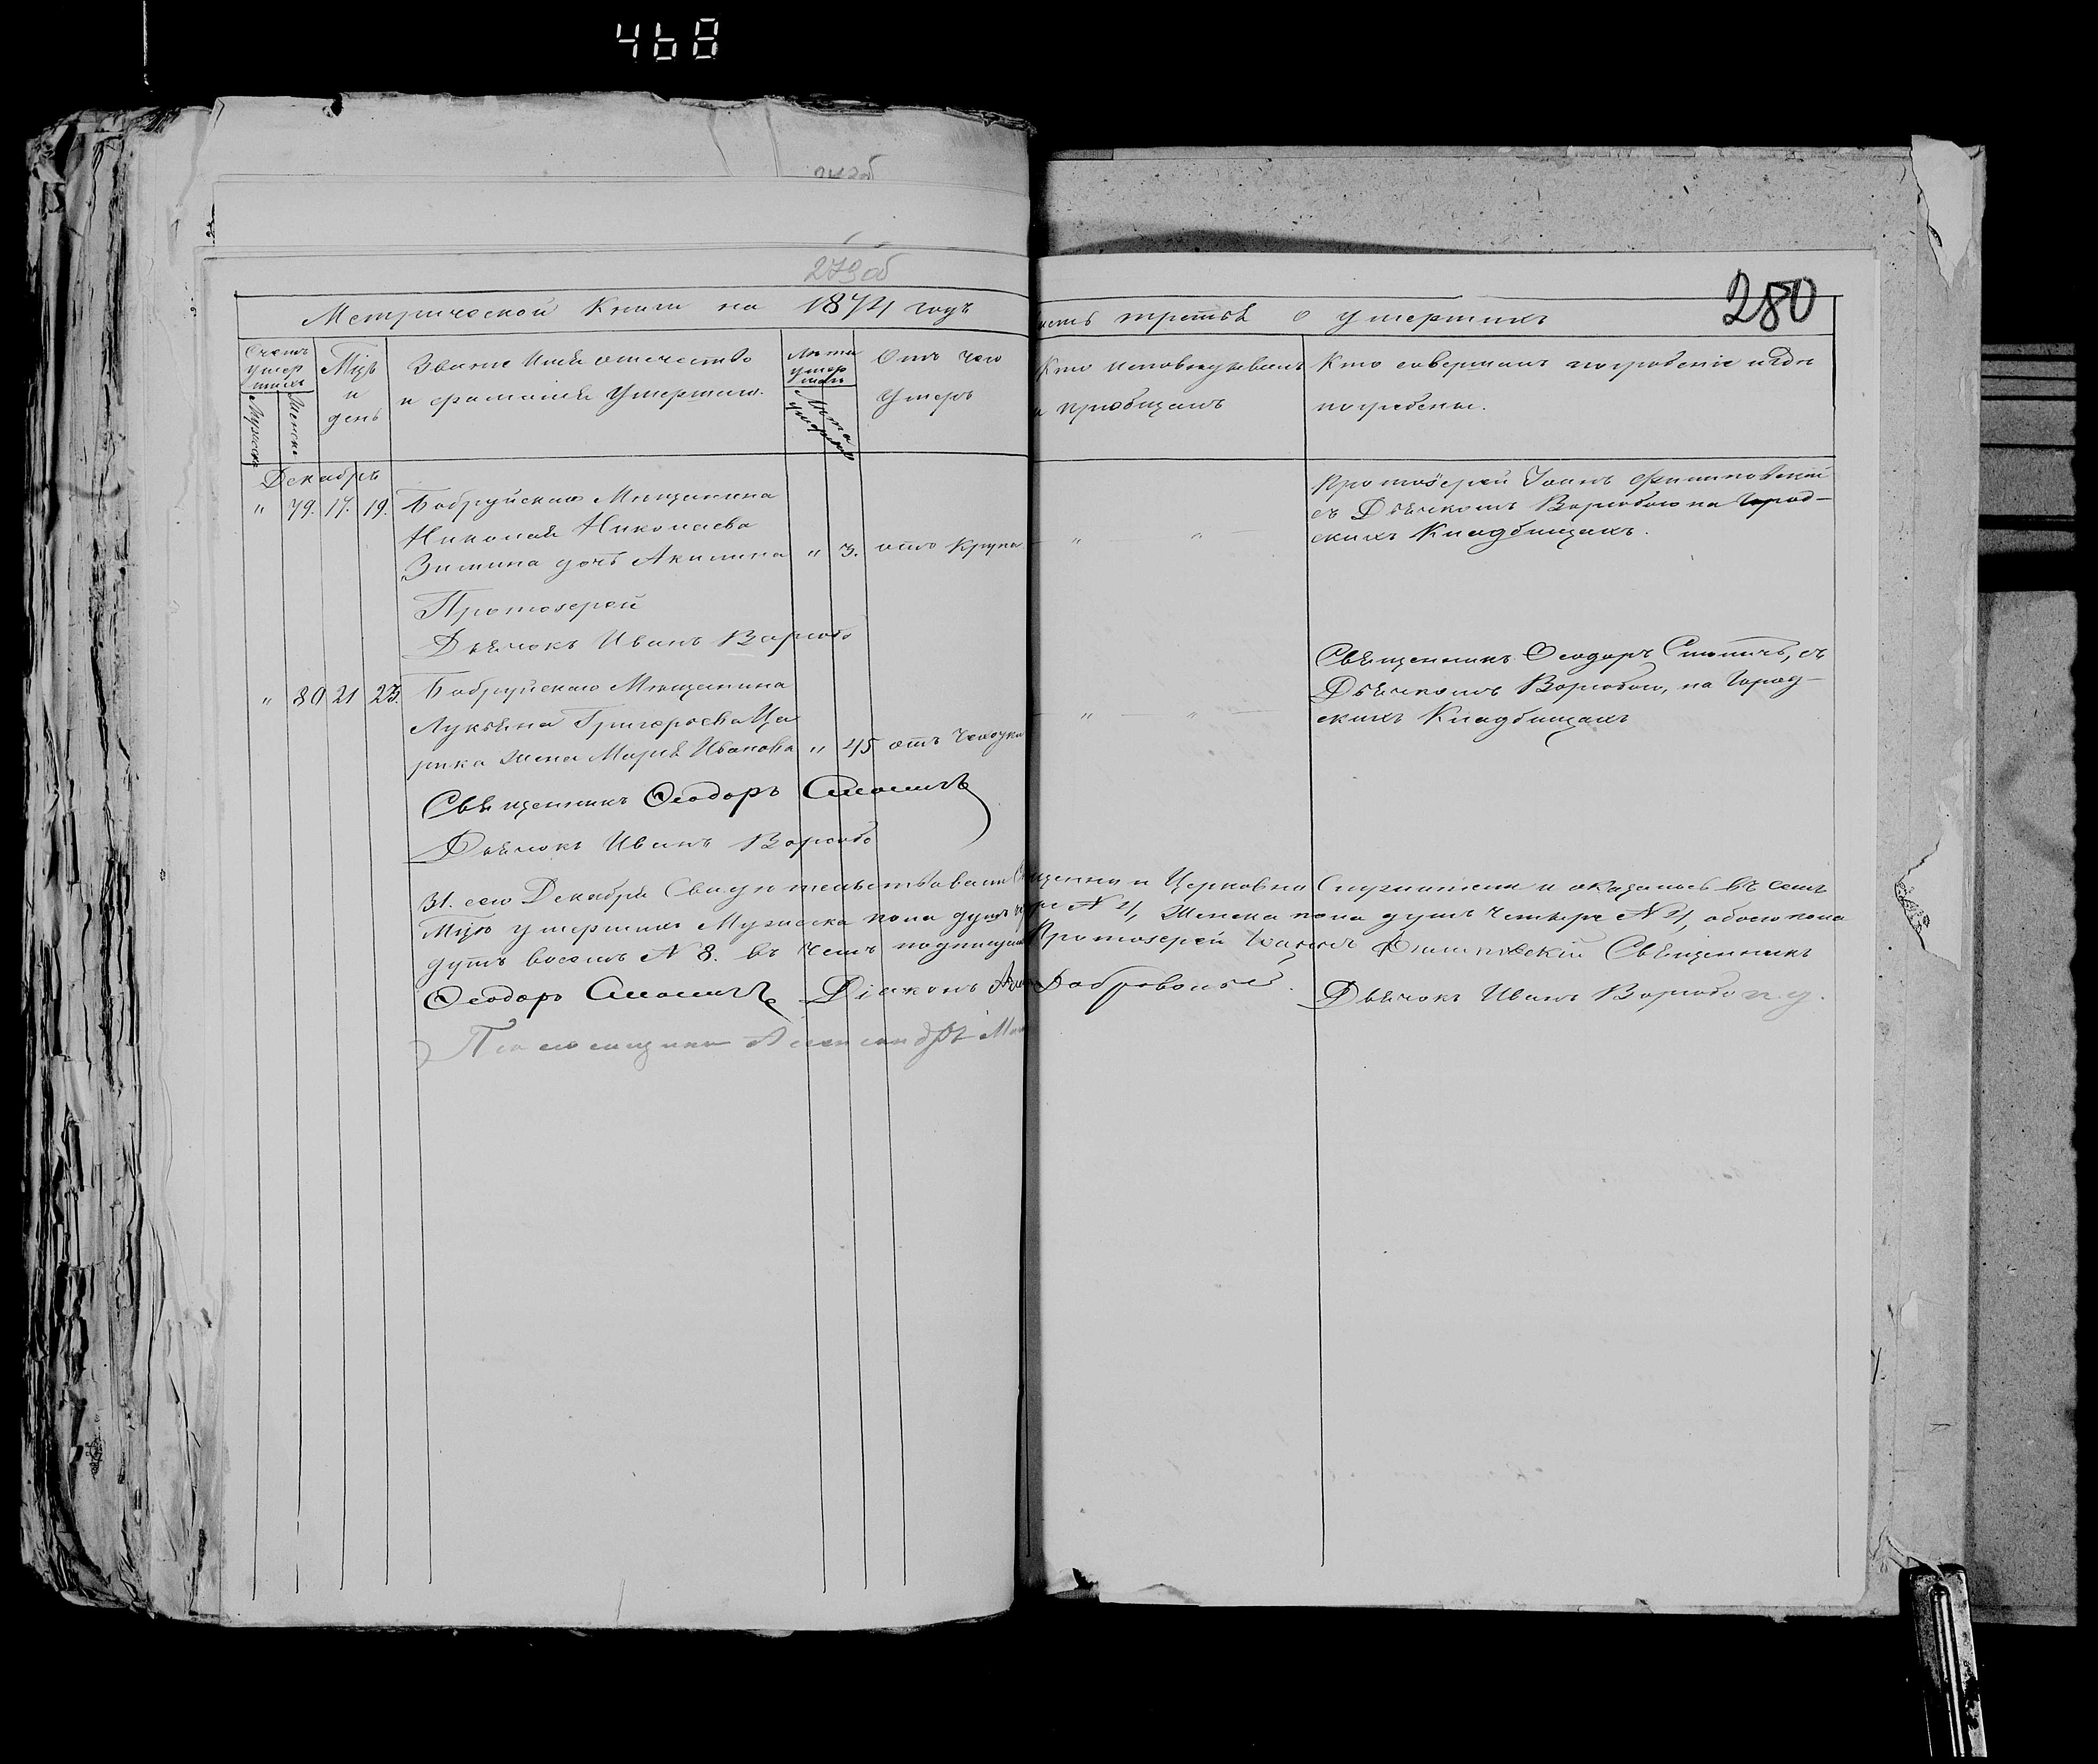 468
279об
280
Метрической Книги на 1874 годъ
часть третья о умершихъ
Счетъ умер шихъ
Мужеска
Женска
Мцъ и день
Званіе Имя отчество и фамилія Умершихъ.
Лѣта умер шихъ
Лѣта умершихъ
Отъ чего Умеръ
Кто исповѣдывалъ и пріобщалъ
Кто совершалъ погребеніе и гдѣ погребены.
Декабрь
" 79. 17. 19. Бобруйскаго Мѣщанина
Николая Николаева
Зимина дочь Акилина " 3. отъ Крупа
" "
Протоіерей Іоанъ Филиповскій
съ Дьячкомъ Вариводою на Город-
скихъ Кладбищахъ.
Протоіерей
Дьячокъ Иванъ
" 80 21 23. Бобруйскаго Мѣщанина
Лукьяна Григорьева Ца
рика жена Марія Иванова " 45 отъ Чахотки
" "
Священникъ Ѳеодоръ Смоличъ, съ
Дьячкомъ на Город-
скихъ Кладбищахъ
Священникъ Ѳеодоръ Смоличъ
Дьячокъ Иванъ
31. сего Декабря Свидѣтельствовали Священно и Церковно Служители и оказалось въ семъ
Мцѣ умершихъ Мужеска пола душъ N 4, Женска пола душъ четыре N 4, обоего пола
душъ восемь N 8. въ чемъ подписуемся Протоіерей Іоаннъ Филиповскій Священникъ
Ѳеодоръ Смоличъ Діаконъ Добровольс Дьячокъ Иванъ
Псаломщикъ Александръ